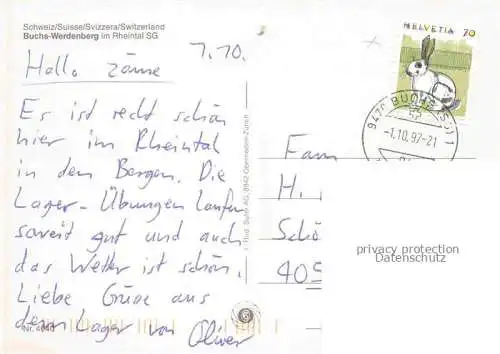 Schweiz/Suisse/Svizzera/Switzerland
Buchs-Werdenberg im Rheintal SG
1.10.
Hallo zäme
Es ist recht schön
hier im Rheintal
in den Bergen. Die
Lager-Übungen laufen
soweit gut und auch
das Wetter ist schön.
Liebe Grüsse aus
dem Lager von Oliver
HELVETIA 70
9470 BUCHS (SG) 1
-1.10.97-21
Fam
H.
Sch
privacy protection
Datenschutz